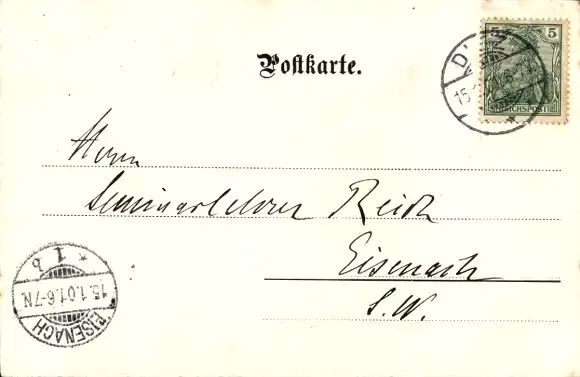 Postkarte.
5
REICHSPOST
15.
Herrn
Seminarlehrer Reich
Eisenach
S. W.
EISENACH
15.1.01.6-7N.
* 1 b